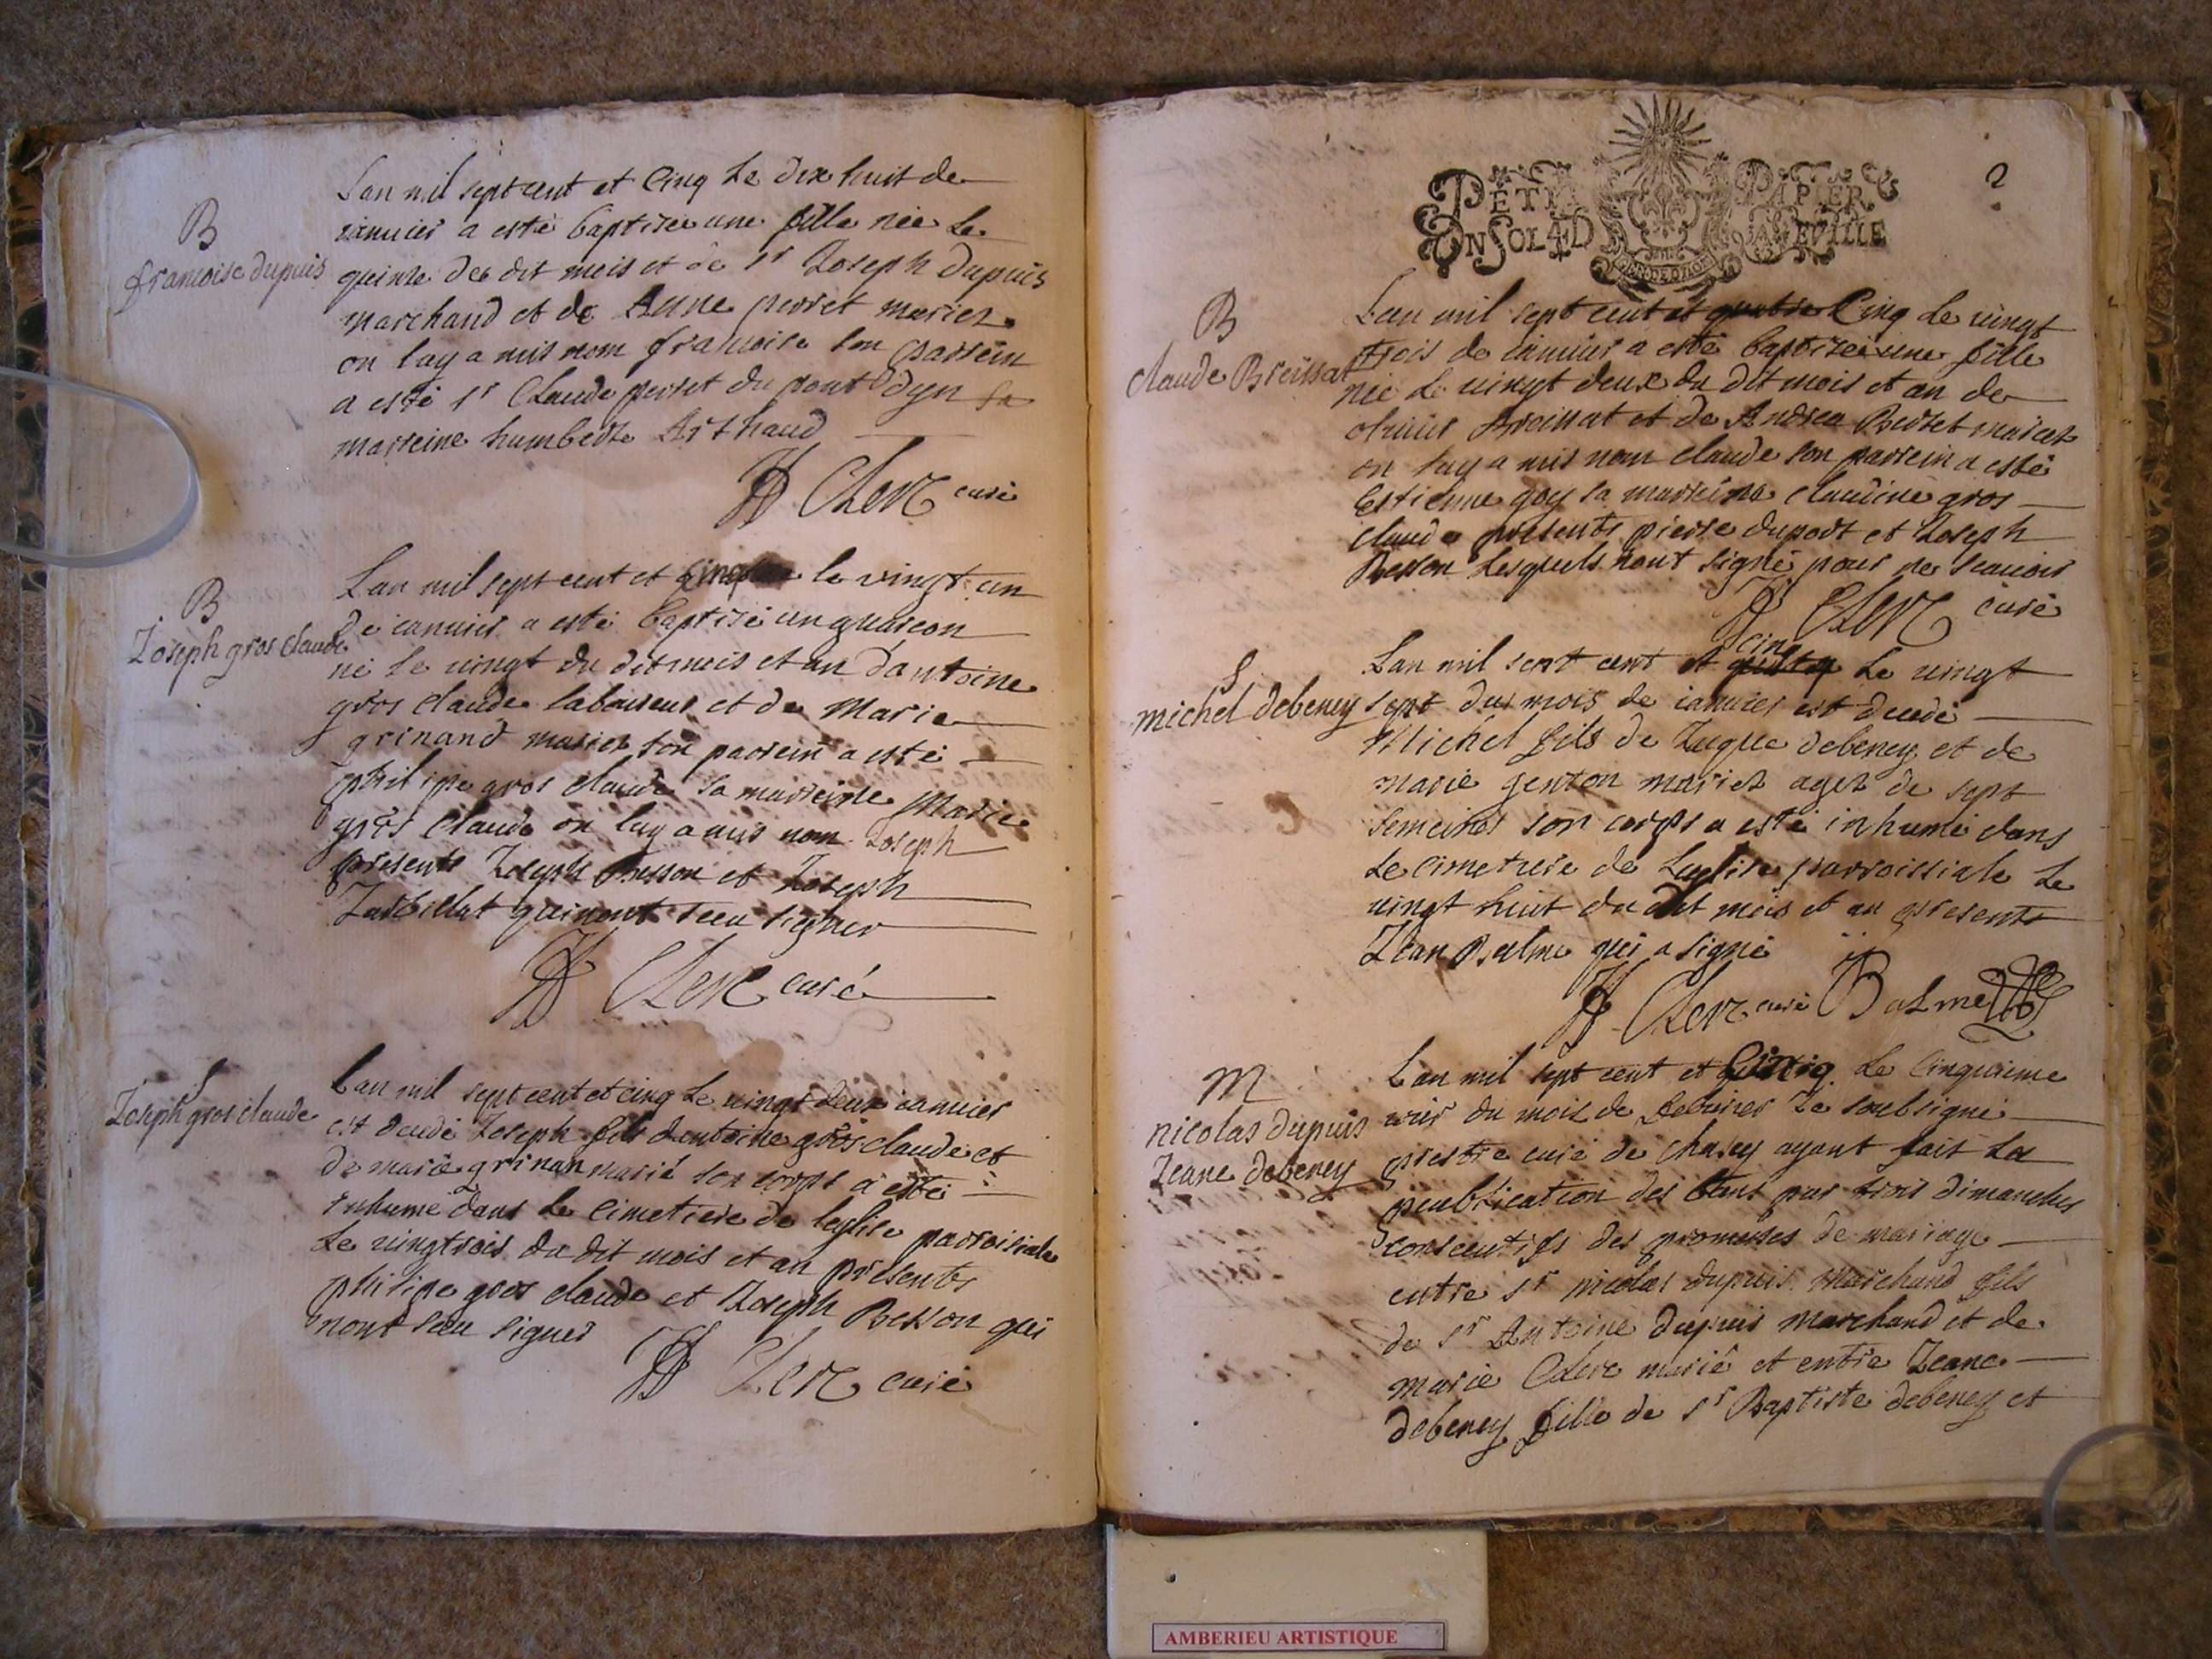 B
francoise dupuis
Lan mil sept cent et Cinq Le dix huit de
ianuier a esté baptisée une fille née Le
quinze du dit mois et de Sr Joseph dupuis
marchand et de Anne perret mariez
on luy a mis nom francoise son parrein
a esté Sr Claude perret du pont dyn sa
marreine humberte Arthaud
Clerc curé
B
Joseph gros claude
Lan mil sept cent et Cinq le vingt un
de ianuier a esté baptisé un garcon
né le vingt du dit mois et an dantoine
gros claude laboureur et de Marie
grinand mariez son parrein a esté
philipe gros claude sa marreine Marie
gros claude on luy a mis nom Joseph
presents Joseph Besson et Joseph
Jarbillat qui nont sceu signer
Clerc curé
S
Joseph gros claude
Lan mil sept cent et cinq Le vingt deux ianuier
est decedé Joseph fils dantoine gros claude et
de marie grinan marié son corps a esté
inhumé dans le cimetiere de leglise parroissiale
Le vingtrois du dit mois et an presents
philipe gros claude et Joseph Besson qui
nont sceu signer
Clerc curé
PETIT PAPIER
UN SOL 4 D LA FEVILLE
2
B
claude Breissat
Lan mil sept cent et quatre Cinq Le vingt
trois de ianuier a esté baptisée une fille
née Le vingt deux du dit mois et an de
oliuier Breissat et de Andrea Berset mariez
on luy a mis nom claude son parrein a esté
Estienne goy sa marreine claudine gros
claude presents pierre duport et Joseph
Besson Lesquels nont signé pour ne scauoir
Clerc curé
S
michel debeney
Cinq
Lan mil sept cent et quatre Le vingt
sept du mois de ianuier est decedé
Michel fils de Luque debeney et de
marie genton mariez agez de sept
semeines son corps a esté inhumé dans
Le cimetiere de Leglise parroissiale Le
vingt huit du dit mois et an presents
Jean Balme qui a signé
Clerc curé Balme
M
nicolas dupuis
Jeane debeney
Lan mil sept cent et Cinq Le Cinquieme
iour du mois de febvrier Je soubsigné
prestre curé de chasey ayant fait La
peublication des bans par trois dimanches
consecutifs des promesses de mariage
entre Sr nicolas dupuis Marchand fils
de Sr Antoine dupuis marchand et de
marie Clerc marié et entre Jeane
debeney fille de Sr Baptiste debeney et
AMBERIEU ARTISTIQUE